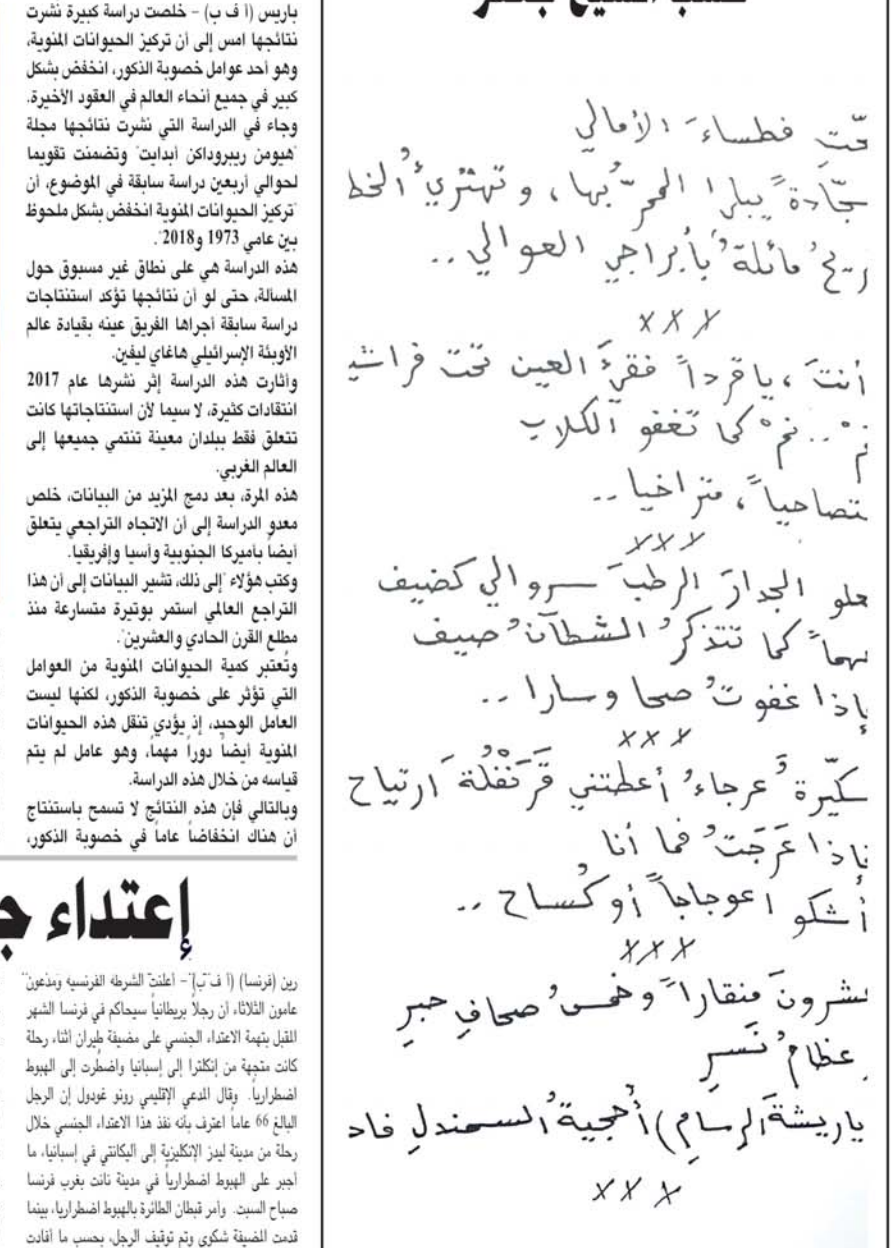 تحتِ فطساءَ الأمالي
سجّادةً يبلى الممرّ بها، وتهترئُ الخطـ
ريحُ مائلةُ بأبراجي العوالي ..
x x x
أنتَ، يا قرداً فقرَ العين تحتَ فراشيـ
نمْ .. نمْ كما تغفو الكلاب
متصاحياً، متراخيا ..
x x x
الجدارَ الرطبَ سروالي كضيف
كما تتذكرُ الشطآنُ صيف
فإذا غفوتُ صحا وسارا ..
x x x
سكّيرةُ عرجاءُ أعطتني قَرَنْفُلةَ ارتياح
فإذا عَرَجَتُ فما أنا
أشكو اعوجاجاً أو كُساح ..
x x x
عشرونَ منقاراً وخمسُ صحافِ حبرِ
عظامُ نَسرِ
ياريشةَ الرسامِ) أُهجيةُ السمندلِ فاد
x x x
باريس (أ ف ب) – خلصت دراسة كبيرة نشرت
نتائجها امس إلى أن تركيز الحيوانات المنوية،
وهو أحد عوامل خصوبة الذكور، انخفض بشكل
كبير في جميع أنحاء العالم في العقود الأخيرة.
وجاء في الدراسة التي نشرت نتائجها مجلة
"هيومن ريبروداكن أبدايت" وتضمنت تقويما
لحوالي أربعين دراسة سابقة في الموضوع، أن
"تركيز الحيوانات المنوية انخفض بشكل ملحوظ
بين عامي 1973 و2018".
هذه الدراسة هي على نطاق غير مسبوق حول
المسألة، حتى لو أن نتائجها تؤكد استنتاجات
دراسة سابقة أجراها الفريق عينه بقيادة عالم
الأوبئة الإسرائيلي هاغاي ليفين.
وأثارت هذه الدراسة إثر نشرها عام 2017
انتقادات كثيرة، لا سيما لأن استنتاجاتها كانت
تتعلق فقط ببلدان معينة تنتمي جميعها إلى
العالم الغربي.
هذه المرة، بعد دمج المزيد من البيانات، خلص
معدو الدراسة إلى أن الاتجاه التراجعي يتعلق
أيضاً بأميركا الجنوبية وآسيا وإفريقيا.
وكتب هؤلاء "إلى ذلك، تشير البيانات إلى أن هذا
التراجع العالمي استمر بوتيرة متسارعة منذ
مطلع القرن الحادي والعشرين".
وتُعتبر كمية الحيوانات المنوية من العوامل
التي تؤثر على خصوبة الذكور، لكنها ليست
العامل الوحيد، إذ يؤدي تنقل هذه الحيوانات
المنوية أيضاً دوراً مهماً، وهو عامل لم يتم
قياسه من خلال هذه الدراسة.
وبالتالي فإن هذه النتائج لا تسمح باستنتاج
أن هناك انخفاضاً عاماً في خصوبة الذكور،
إعتداء جـ
رين (فرنسا) (أ ف ب) – أعلنت الشرطة الفرنسية ومدعون
عامون الثلاثاء أن رجلاً بريطانياً سيحاكم في فرنسا الشهر
المقبل بتهمة الاعتداء الجنسي على مضيفة طيران أثناء رحلة
كانت متجهة من إنكلترا إلى إسبانيا واضطرت إلى الهبوط
اضطرارياً. وقال المدعي الإقليمي رونو غودول إن الرجل
البالغ 66 عاماً اعترف بأنه نفذ هذا الاعتداء الجنسي خلال
رحلة من مدينة ليدز الإنكليزية إلى أليكانتي في إسبانيا، ما
أجبر على الهبوط اضطرارياً في مدينة نانت بغرب فرنسا
صباح السبت. وأمر قبطان الطائرة بالهبوط اضطراريا، بينما
قدمت المضيفة شكوى وتم توقيف الرجل، بحسب ما أفادت